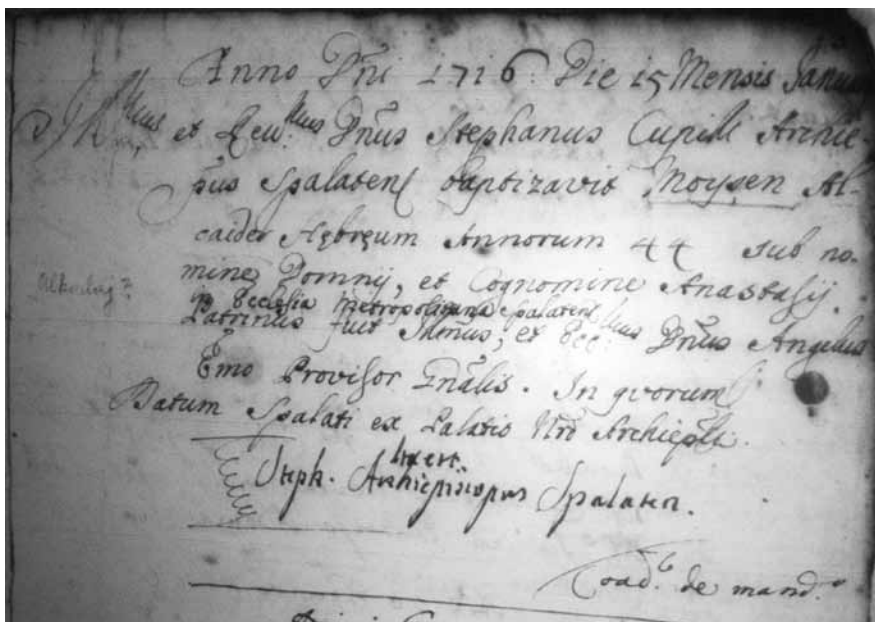 Anno Dñi 1716. Die 15 Mensis Januarij
Illmus et Rev.mus Dñus Stephanus Cupilli Archie-
pus Spalaten baptizavit Moysen Al-
caider Hębręum Annorum 44 sub no-
mine Domnij, et Cognomine Anastasij.
in Ecclesia Metropolitana Spalaten
Patrinus fuit Illmus, et Ecc.mus Dñus Angelus
Emo Provisor Gñalis. In quorum
Datum Spalati ex Palatio Nrõ Archiepli.
Steph. Archiepiscopus Spalaten.
Coad. de mand.